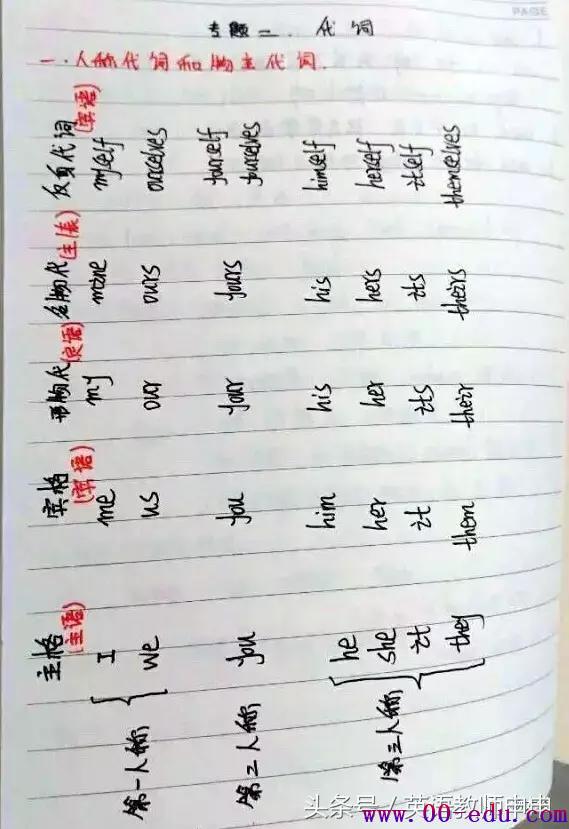 PAGE
专题二. 代词
一. 人称代词和物主代词.
主格 宾格 形物代 名物代 反身代词
(主语) (宾语) (定语) (主/表) (宾语)
第一人称 I me my mine myself
we us our ours ourselves
第二人称 you you your yours yourself
yourselves
第三人称 he him his his himself
she her her hers herself
it it its its itself
they them their theirs themselves
头条号 / 英语教师申申
www.00-edu.com